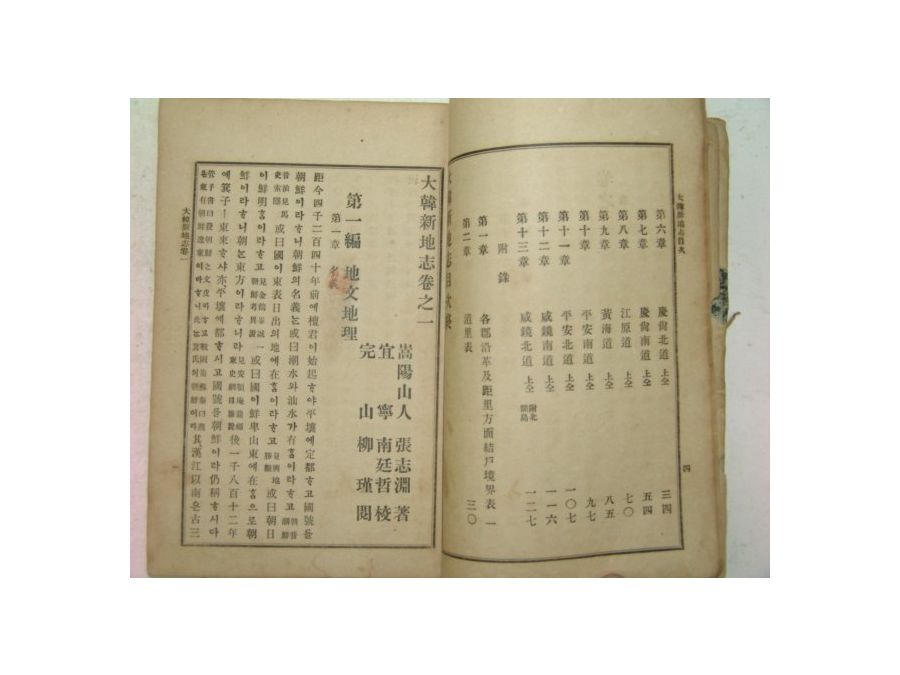 大韓新地志目次
第六章 慶尙北道 上仝 三四
第七章 慶尙南道 上仝 五四
第八章 江原道 上仝 七〇
第九章 黃海道 上仝 八五
第十章 平安南道 上仝 九七
第十一章 平安北道 上仝 一〇七
第十二章 咸鏡南道 上仝 一一六
第十三章 咸鏡北道 上仝 附北間島 一二七
附錄
第一章 各郡沿革及距里方面結戶境界表 一
第二章 道里表 三〇
四
大韓新地志卷之一
嵩陽山人 張志淵 著
宜寧 南廷哲 校
完山 柳瑾 閱
第一編 地文地理
第一章 名義
距今四千二百四十年前에檀君이始起ᄒᆞ샤平壤에定都ᄒᆞ고國號를
朝鮮이라ᄒᆞ니朝鮮의名義는或曰潮水와汕水가有ᄒᆞᆷ이라ᄒᆞ고
或曰國이東表日出의地에在ᄒᆞᆷ이라ᄒᆞ고 或曰朝日
이鮮明ᄒᆞᆷ이라ᄒᆞ고 一或曰國이鮮卑山東에在ᄒᆞᆷ으로朝
鮮이라ᄒᆞ니朝는東方이라ᄒᆞ니라 後一千八百十二年
에箕子ㅣ東來ᄒᆞ샤亦平壤에都ᄒᆞ시고國號를朝鮮이라仍稱ᄒᆞ시다
其漢江以南은古三
大韓新地志卷一